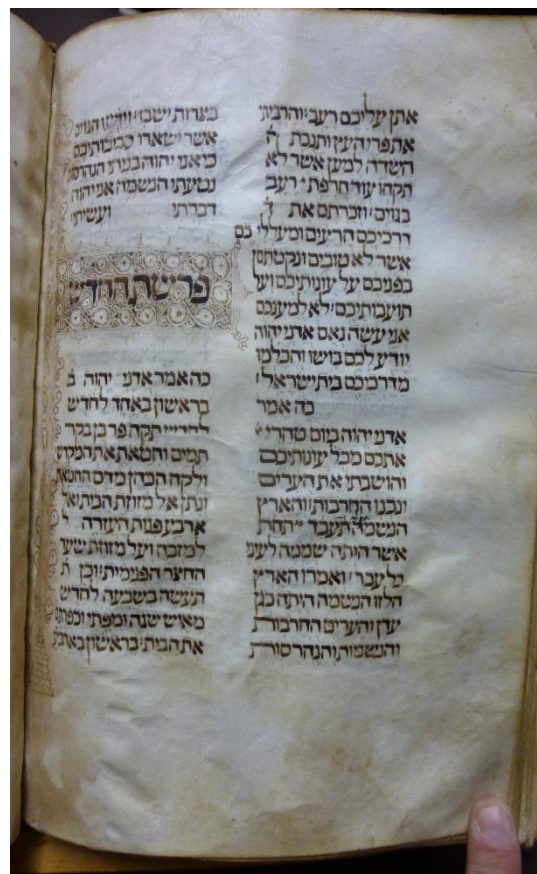 אתן עליכם רעב׃ והרביתי
את פרי העץ ותנובת ה
השדה למען אשר לא
תקחו עוד חרפת רעב
בגוים׃ וזכרתם את ד
דרכיכם הרעים ומעלליכם
אשר לא טובים ונקטתם
בפניכם על עונותיכם ועל
תועבותיכם׃ לא למענכם
אני עשה נאם אדני יהוה
יודע לכם בושו והכלמו
מדרכיכם בית ישראל׃
כה אמר
אדני יהוה ביום טהרי
אתכם מכל עונותיכם
והושבתי את הערים
ונבנו החרבות׃ והארץ
הנשמה תעבד תחת
אשר היתה שממה לעיני
כל עבר׃ ואמרו הארץ
הלזו הנשמה היתה כגן
עדן והערים החרבות
והנשמות והנהרסות
בצרות ישבו׃ וידעו הגוים
אשר ישארו סביבותיכם
כי אני יהוה בניתי הנהרסות
נטעתי הנשמה אני יהוה
דברתי ועשיתי׃
פרשת החדש
כה אמר אדני יהוה ב
בראשון באחד לחדש
תקח פר בן בקר
תמים וחטאת את המקדש
ולקח הכהן מדם החטאת
ונתן אל מזוזת הבית ואל
ארבע פנות העזרה ל
למזבח ועל מזוזת שער
החצר הפנימית׃ וכן ת
תעשה בשבעה לחדש
מאיש שגה ומפתי וכפרתם
את הבית׃ בראשון בארבעה